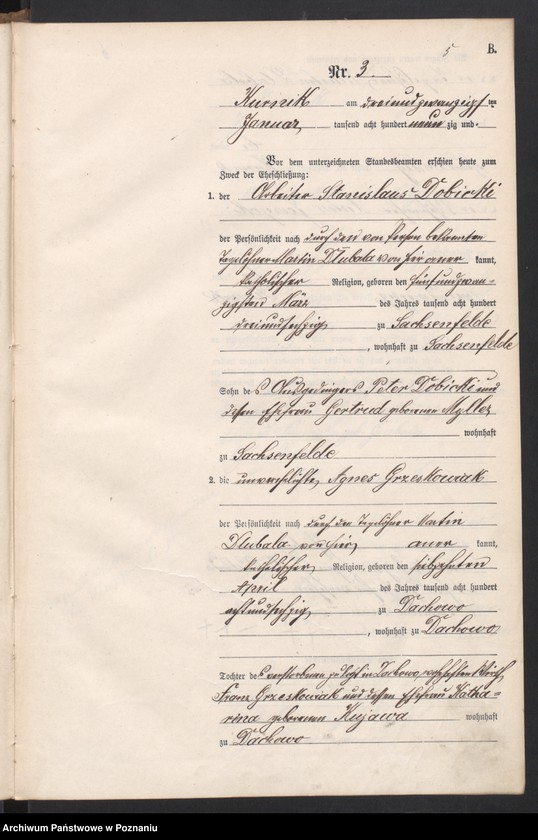 5 B.
Nr. 3.
Kurnik am dreiundzwanzigsten
Januar tausend acht hundert neunzig und
Vor dem unterzeichneten Standesbeamten erschien heute zum
Zweck der Eheschließung:
1. der Arbeiter Stanislaus Dobicki
der Persönlichkeit nach durch den von Person bekannten
Tagelöhner Martin Dlubala von hier aner kannt,
katholischer Religion, geboren den fünfundzwan-
zigsten März des Jahres tausend acht hundert
dreiundsechzig zu Sachsenfelde
, wohnhaft zu Sachsenfelde
Sohn des Ausgedingers Peter Dobicki und
dessen Ehefrau Gertrud geborenen Myller
wohnhaft
zu Sachsenfelde
2. die unverehelichte Agnes Grzeskowiak
der Persönlichkeit nach durch den Tagelöhner Martin
Dlubala von hier aner kannt,
katholischer Religion, geboren den siebzehnten
April des Jahres tausend acht hundert
achtundsechzig zu Dachowo
, wohnhaft zu Dachowo
Tochter des verstorbenen in Dachowo
Franz Grzeskowiak und dessen Ehefrau Katha-
rina geborenen Kujawa wohnhaft
zu Dachowo
Archiwum Państwowe w Poznaniu